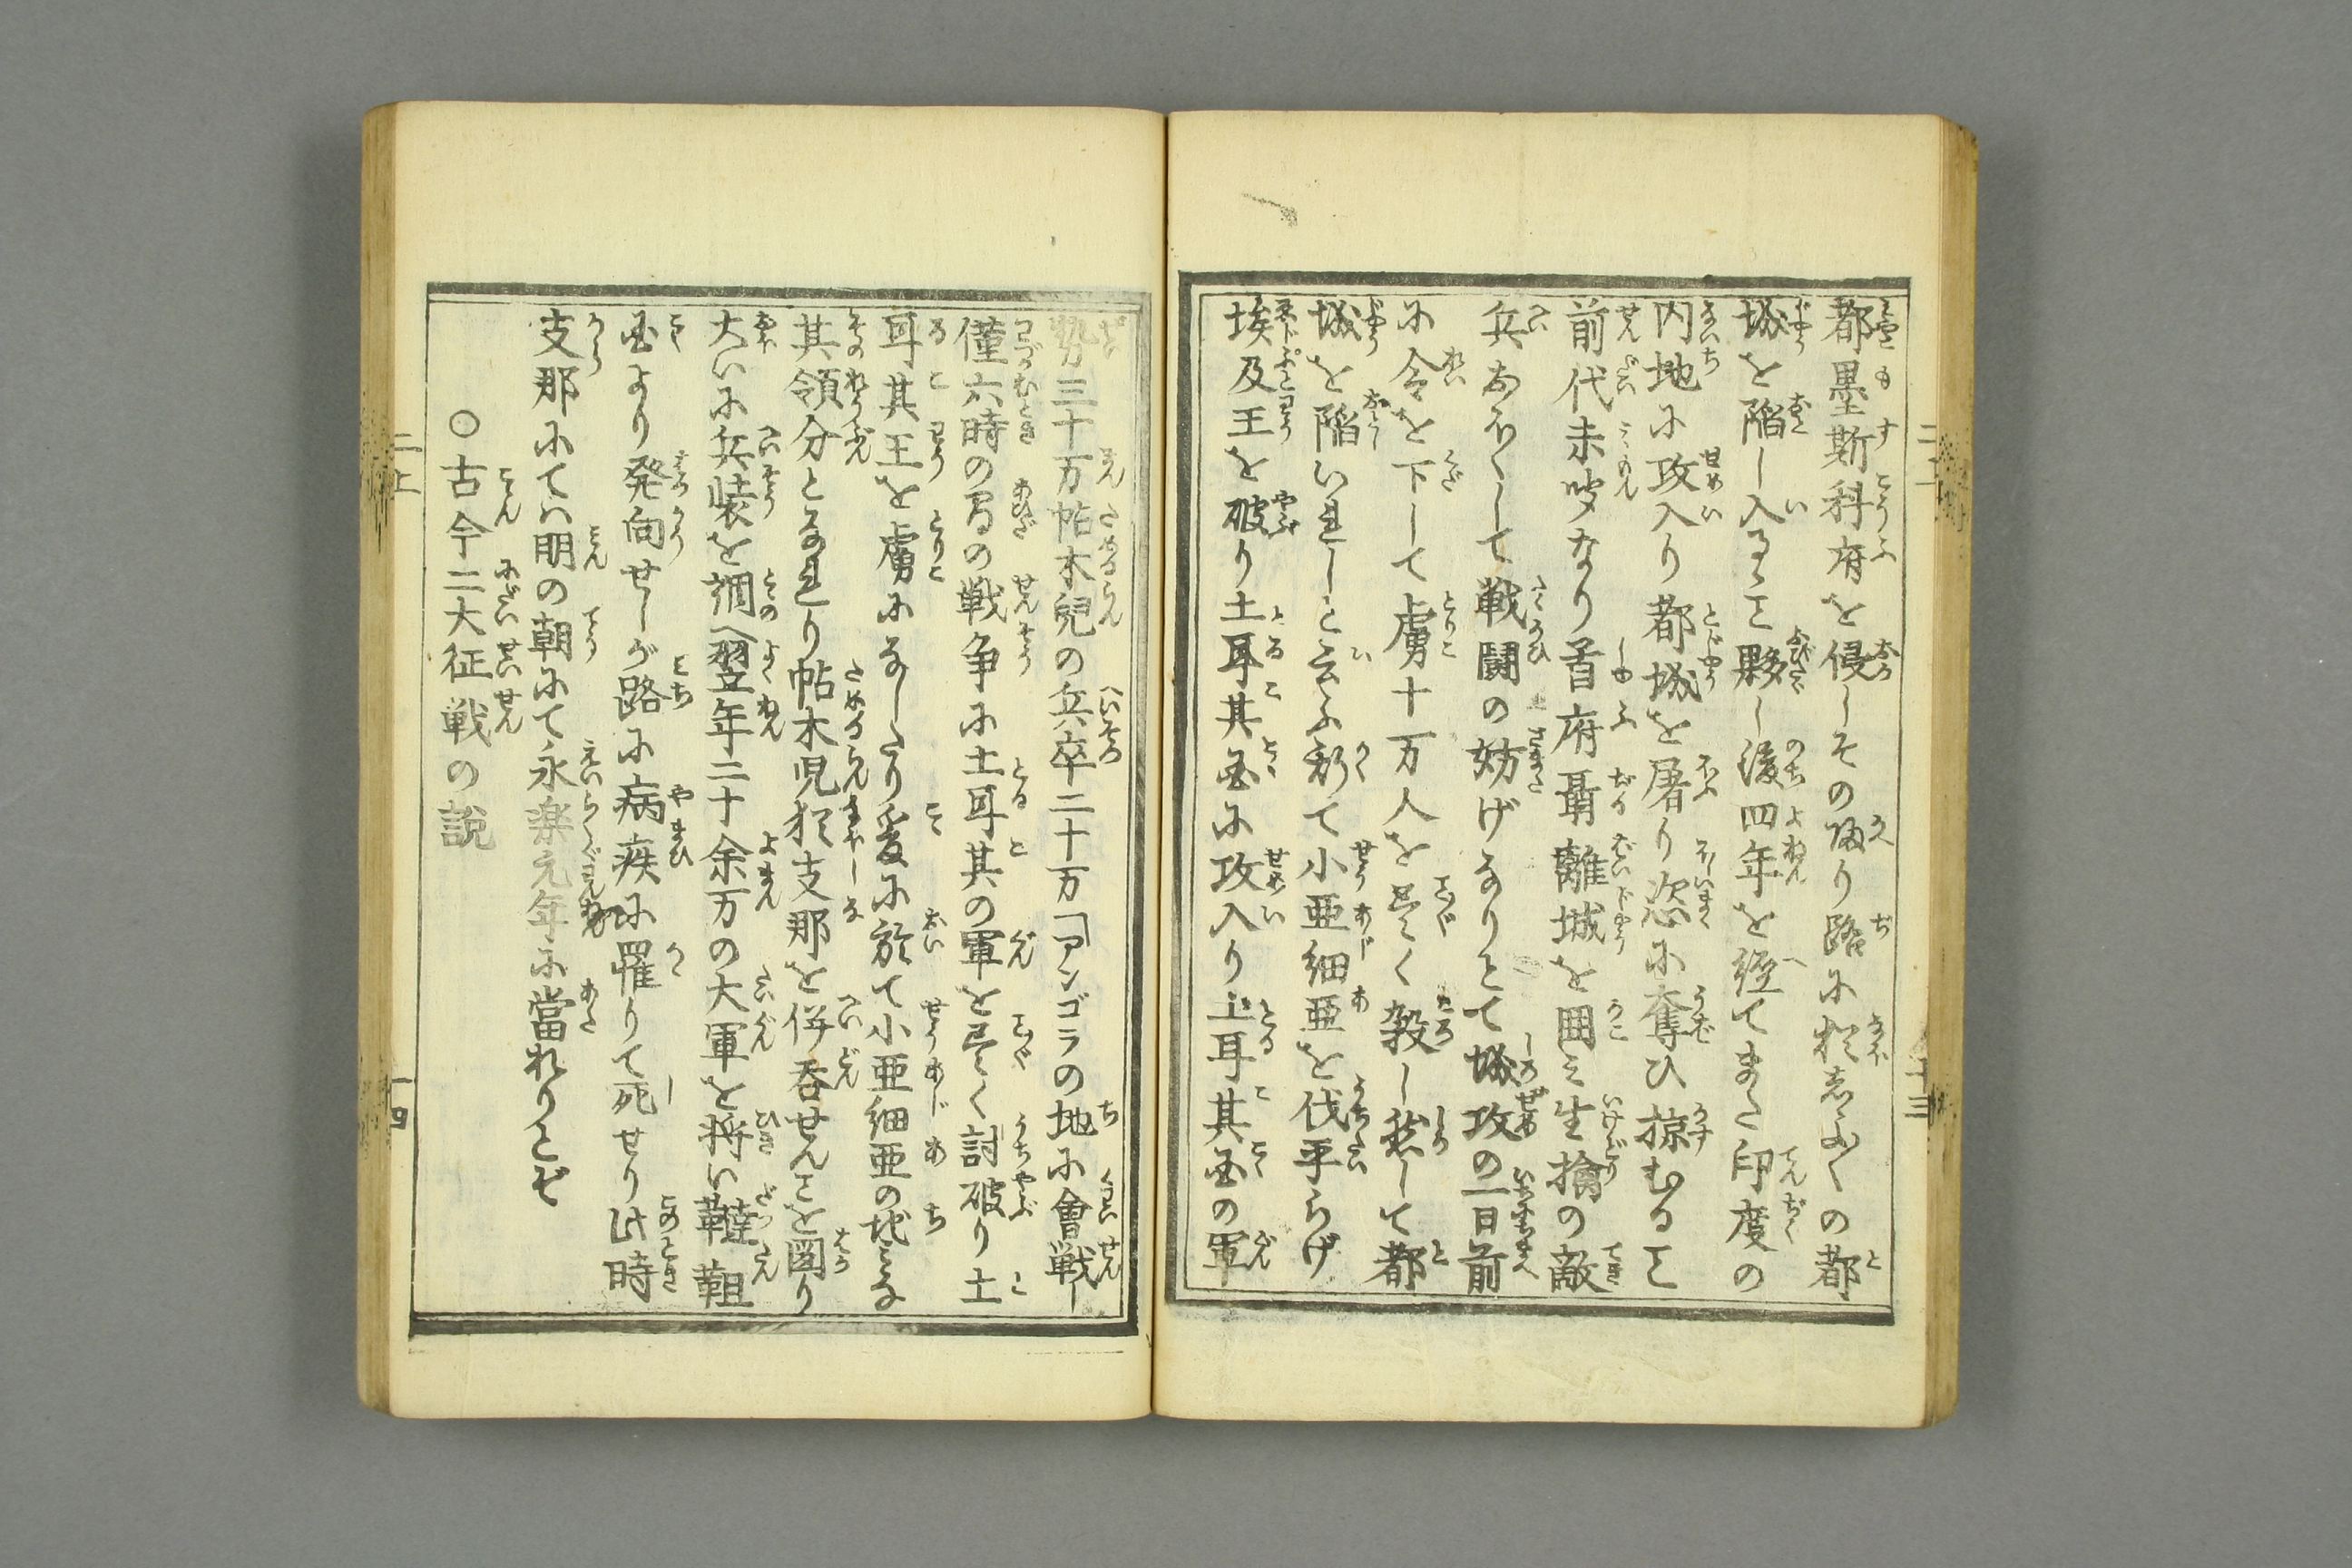 都墨斯科府を侵しその帰り路に猶志ふ〳〵の都
城を陥し入ること夥し後四年を経てまた印度の
内地に攻入り都城を屠り恣に奪ひ掠むること
前代未聞なり首府聶離城を囲ミ生擒の敵
兵おほくして戦闘の妨げなりとて城攻の一日前
に令を下して虜十万人を尽く殺し然して都
城を陥いれしと云ふ斯て小亜細亜を伐平らげ
埃及王を破り土耳其国に攻入り土耳其国の軍
勢三十万帖木児の兵卒二十万「アンゴラの地に會戦し
僅六時の間の戦争に土耳其の軍を尽く討破り土
耳其王を虜になしたり爰に於て小亜細亜の地ミな
其領分となれり帖木児猶支那を併呑せんことを図り
大いに兵装を調へ翌年二十余万の大軍を将い韃靼
国より発向せしが路に病疾に罹りて死せり此時
支那にてハ明の朝にて永楽元年に當れりとぞ
〇古今二大征戦の説
二上
十三
二上
十四